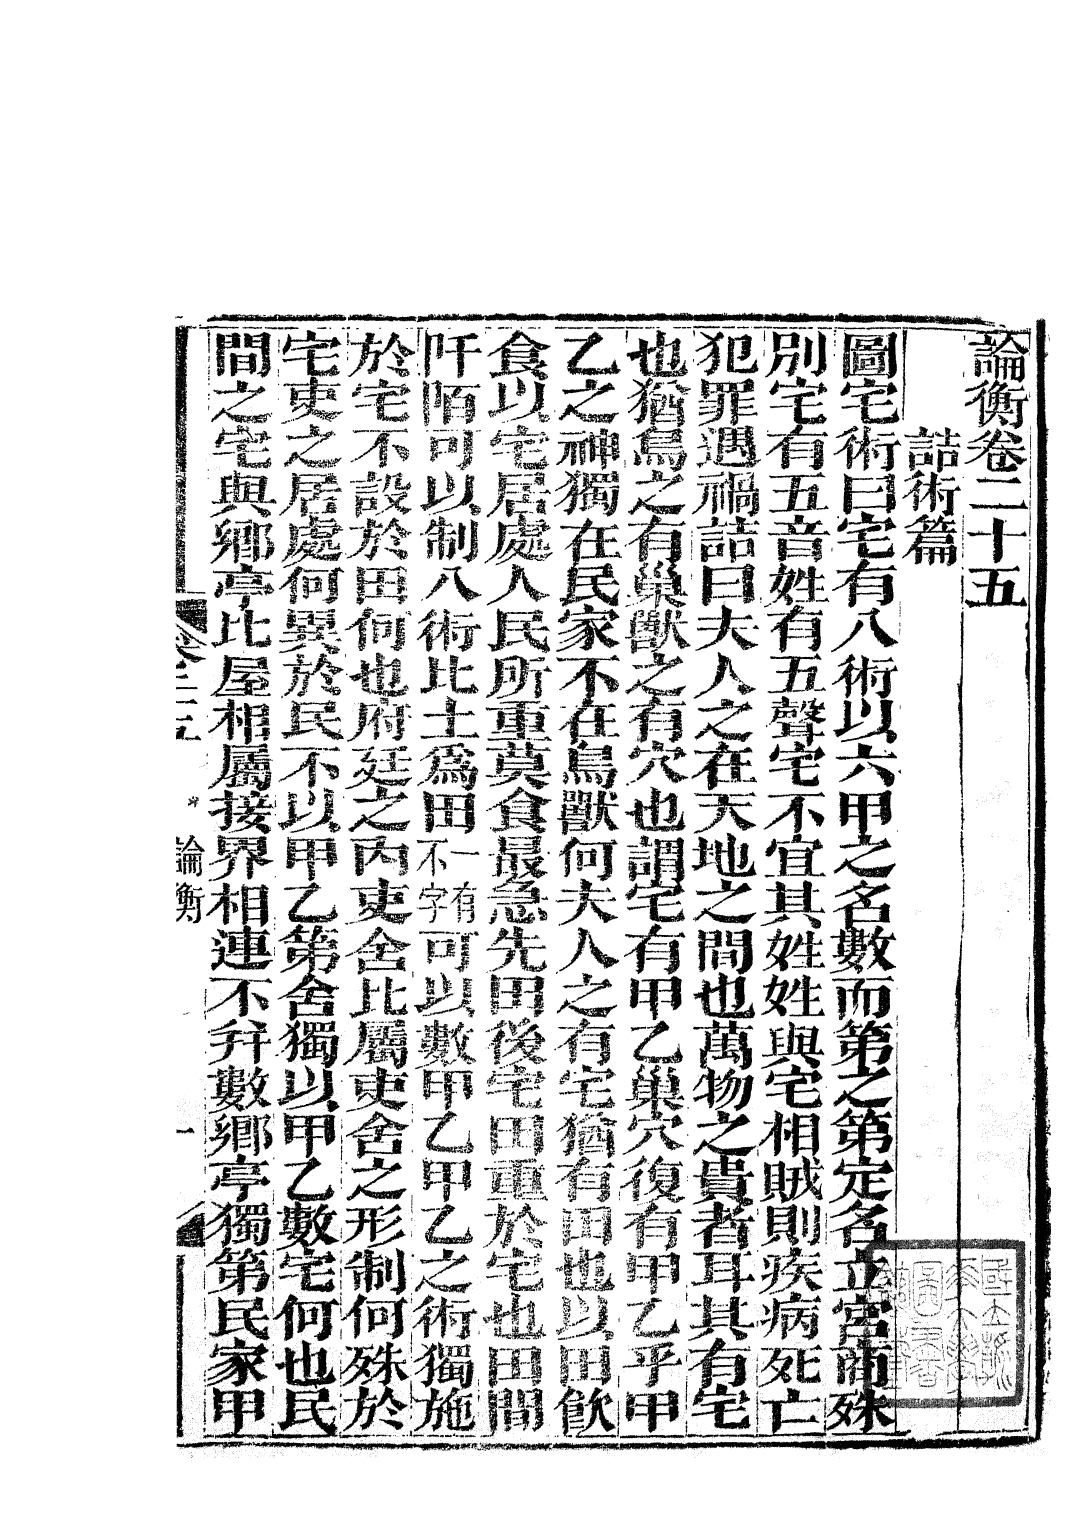 論衡卷二十五
詰術篇
圖宅術曰宅有八術以六甲之名數而第之第定名立宮商殊
別宅有五音姓有五聲宅不宜其姓姓與宅相賊則疾病死亡
犯罪遇禍詰曰夫人之在天地之間也萬物之貴者耳其有宅
也猶鳥之有巢獸之有穴也謂宅有甲乙巢穴復有甲乙乎甲
乙之神獨在民家不在鳥獸何夫人之有宅猶有田也以田飲
食以宅居處人民所重莫食最急先田後宅田重於宅也田間
阡陌可以制八術比土爲田一有不字可以數甲乙甲乙之術獨施
於宅不設於田何也府廷之內吏舍比屬吏舍之形制何殊於
宅吏之居處何異於民不以甲乙第舍獨以甲乙數宅何也民
間之宅與鄉亭比屋相屬接界相連不幷數鄉亭獨第民家甲
卷二十五
論衡
一